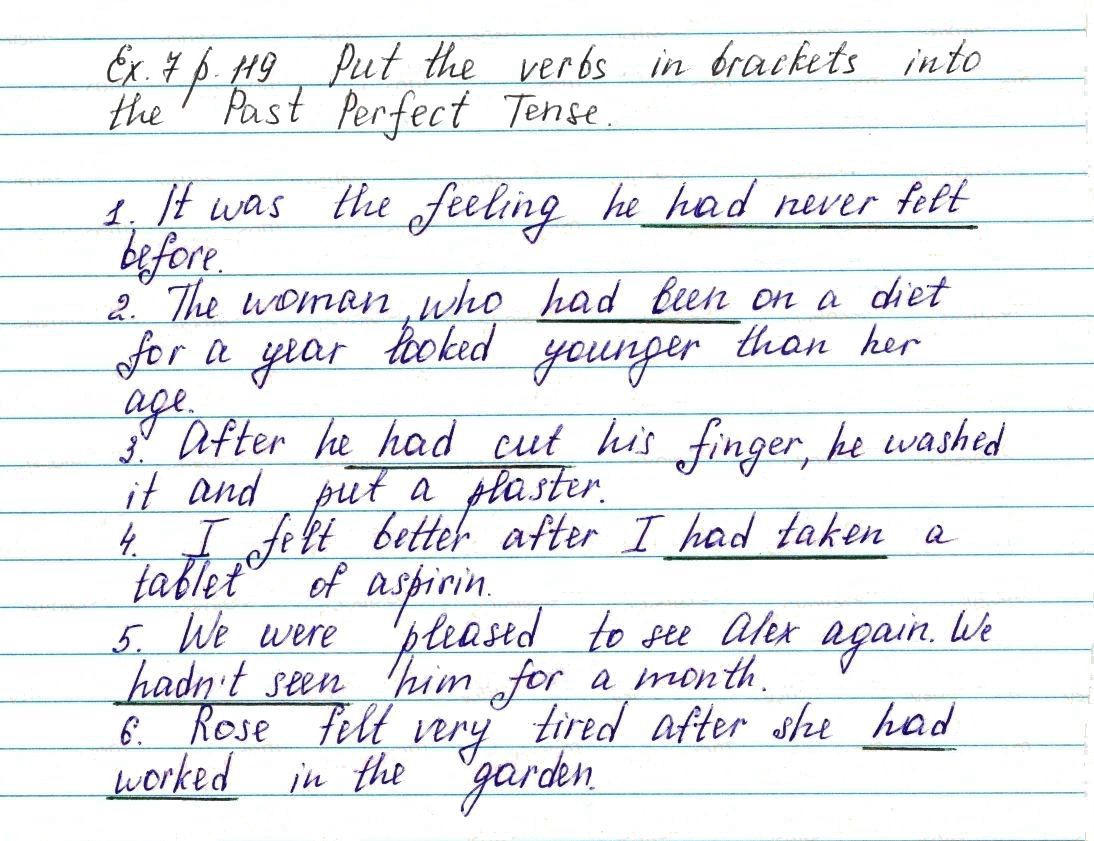 Ex. 7 p. 119 Put the verbs in brackets into
the Past Perfect Tense.
1. It was the feeling he had never felt
before.
2. The woman, who had been on a diet
for a year looked younger than her
age.
3. After he had cut his finger, he washed
it and put a plaster.
4. I felt better after I had taken a
tablet of aspirin.
5. We were pleased to see Alex again. We
hadn't seen him for a month.
6. Rose felt very tired after she had
worked in the garden.